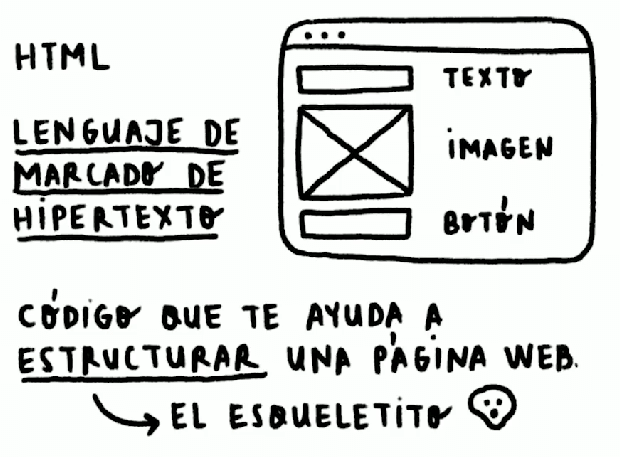 HTML
LENGUAJE DE
MARCADO DE
HIPERTEXTO
TEXTO
IMAGEN
BOTÓN
CÓDIGO QUE TE AYUDA A
ESTRUCTURAR UNA PÁGINA WEB.
EL ESQUELETITO